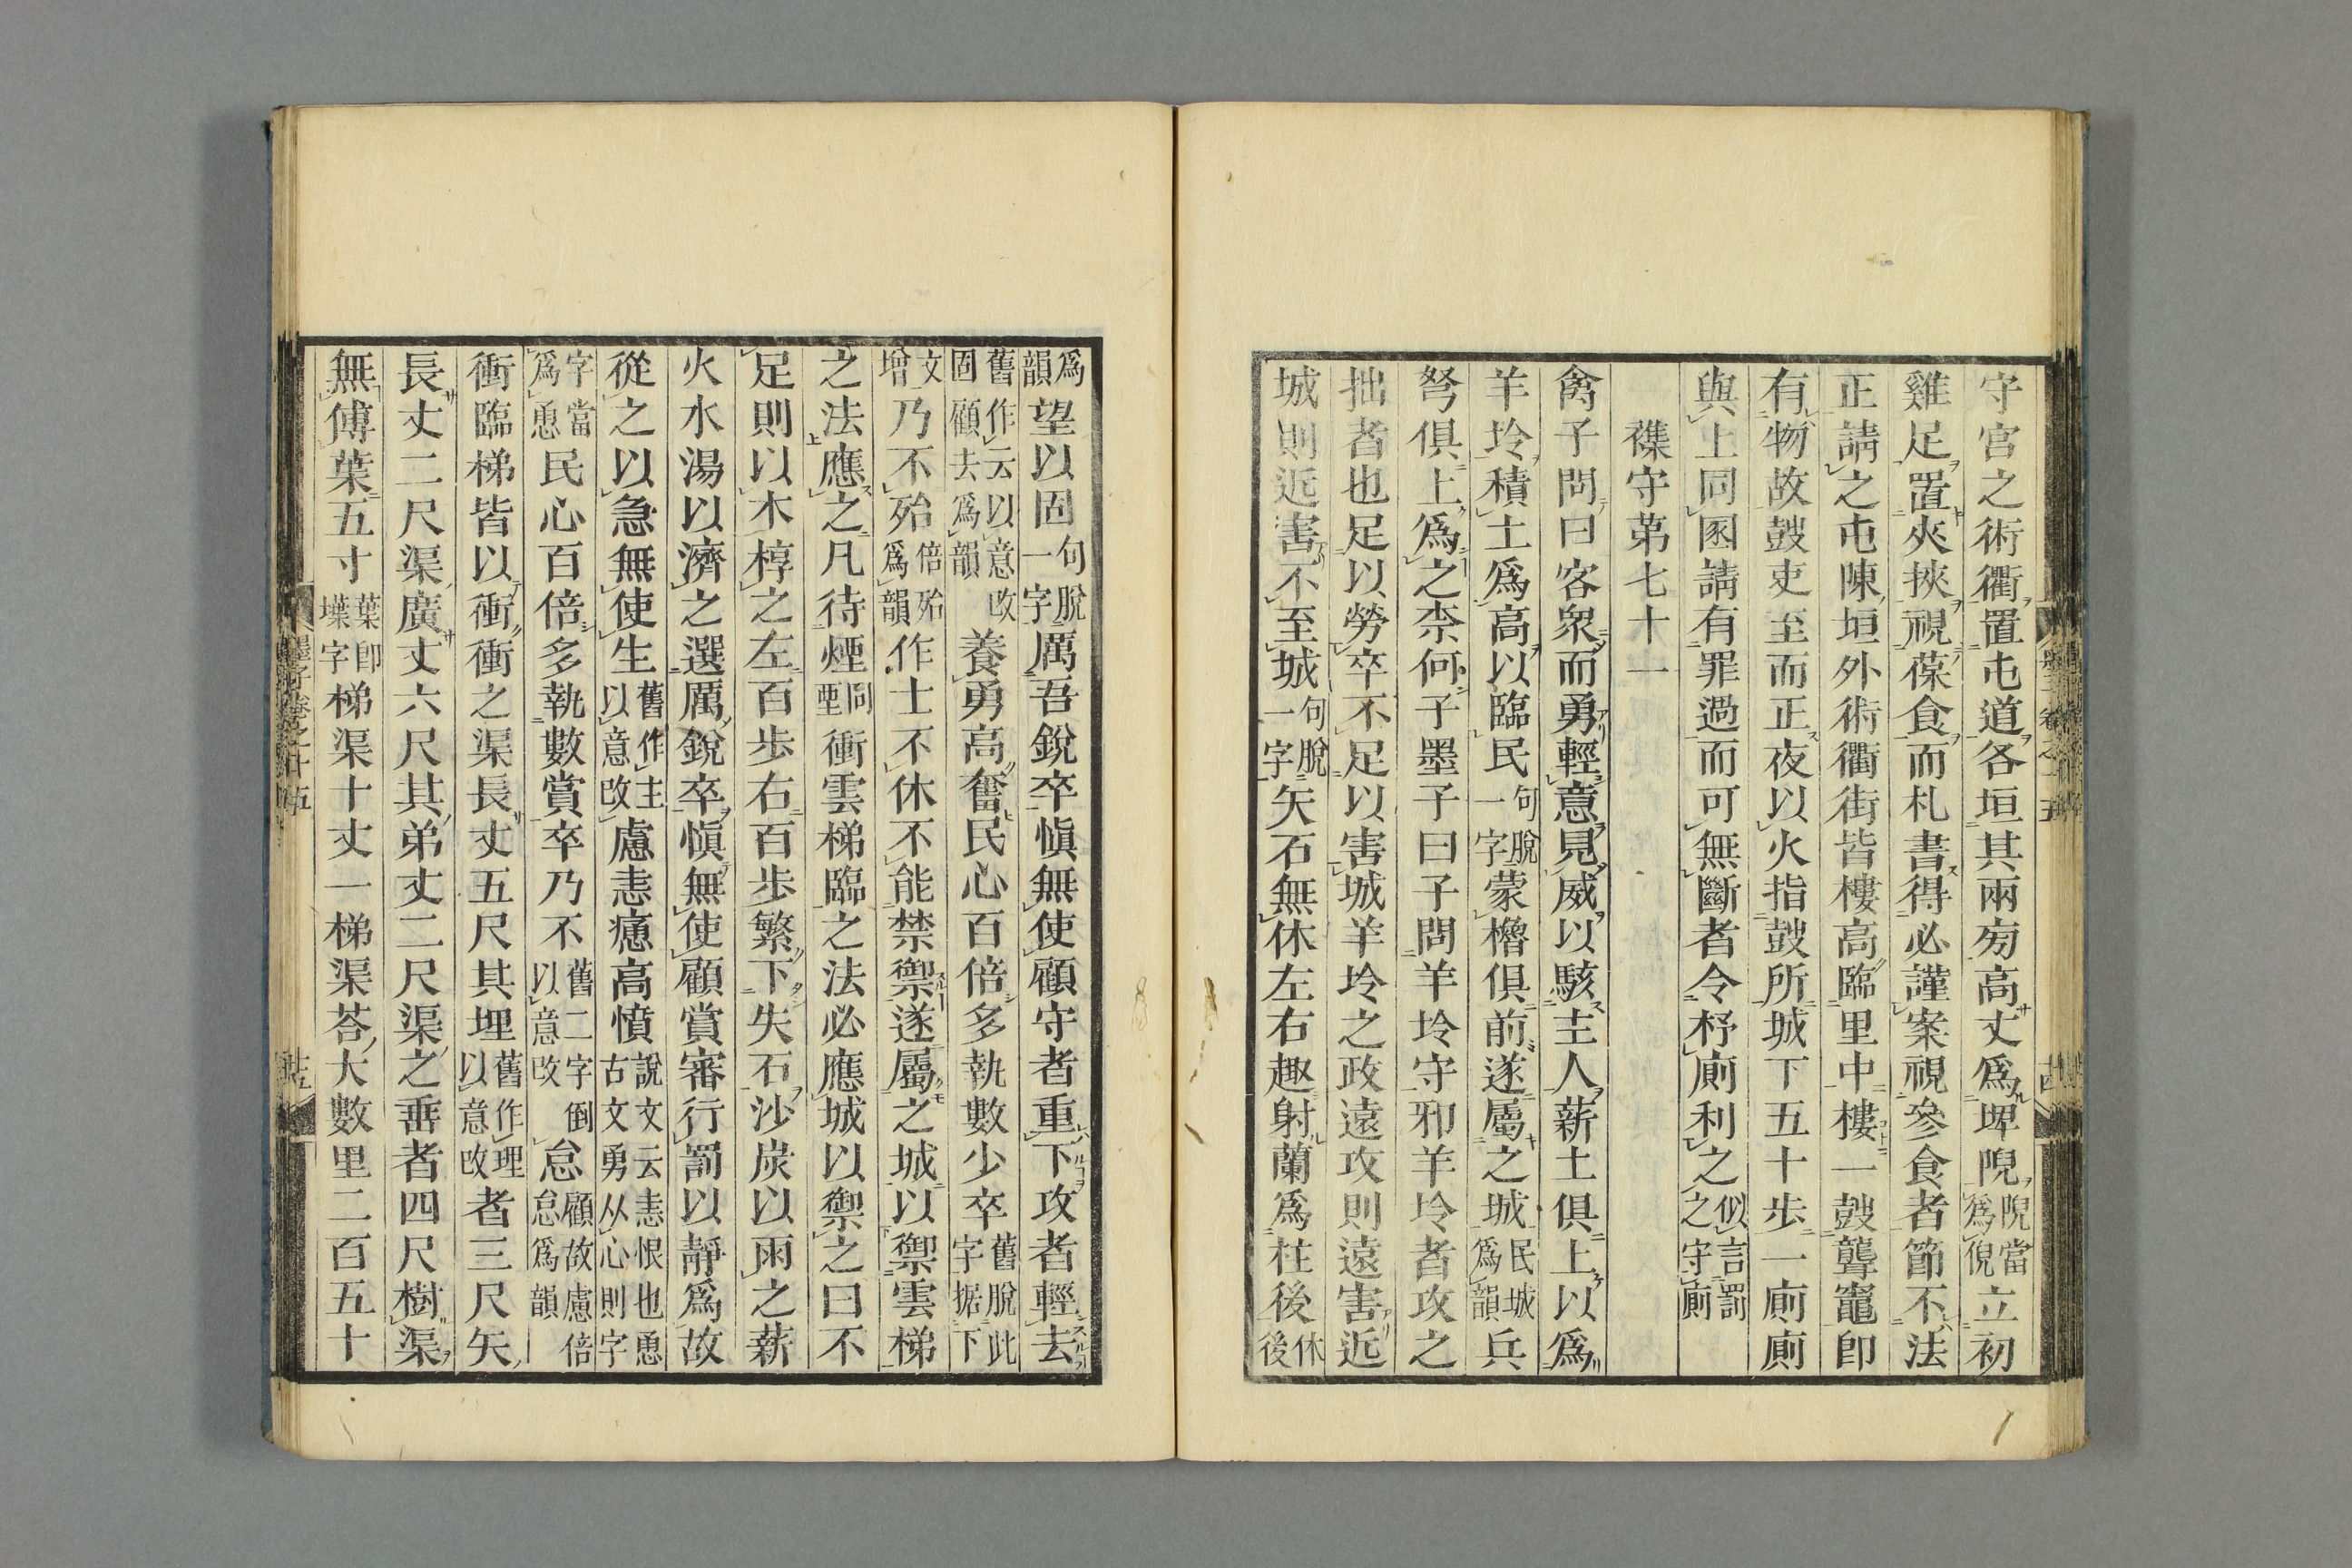 守宮之術衢置屯道各垣其兩旁高丈爲埤陧陧當爲倪立初
雞足置夾挾視葆食而札書得必謹案視參食者節不法
正請之屯陳垣外術衢街皆樓高臨里中樓一鼓聾竈卽
有物故鼓吏至而正夜以火指鼓所城下五十步一廁廁
與上同圂請有罪過而可無斷者令杼廁利之似言罰之守廁
襍守第七十一
禽子問曰客衆而勇輕意見威以駭主人薪土俱上以爲
羊坽積土爲高以臨民句脫一字蒙櫓俱前遂屬之城民城爲韻兵
弩俱上爲之柰何子墨子曰子問羊坽守邪羊坽者攻之
拙者也足以勞卒不足以害城羊坽之政遠攻則遠害近
城則近害不至城句脫一字矢石無休左右趣射蘭爲柱後休後
爲韻望以固句脫一字厲吾銳卒愼無使顧守者重下攻者輕去
舊作云以意改固顧去爲韻養勇高奮民心百倍多執數少卒舊脫此字据下
文增乃不殆倍殆爲韻作士不休不能禁禦遂屬之城以禦雲梯
之法應之凡待煙同堙衝雲梯臨之法必應城以禦之曰不
足則以木椁之左百步右百步繁下矢石沙炭以雨之薪
火水湯以濟之選厲銳卒愼無使顧賞審行罰以靜爲故
從之以急無使生舊作主以意改慮恚癔高憤說文云恚恨也恿古文勇从心則字
字當爲恿民心百倍多執數賞卒乃不舊二字倒以意改怠顧故慮倍怠爲韻
衝臨梯皆以衝衝之渠長丈五尺其埋舊作理以意改者三尺矢
長丈二尺渠廣丈六尺其弟丈二尺渠之垂者四尺樹渠
無傅葉五寸葉卽堞字梯渠十丈一梯渠荅大數里二百五十
墨子卷之十五